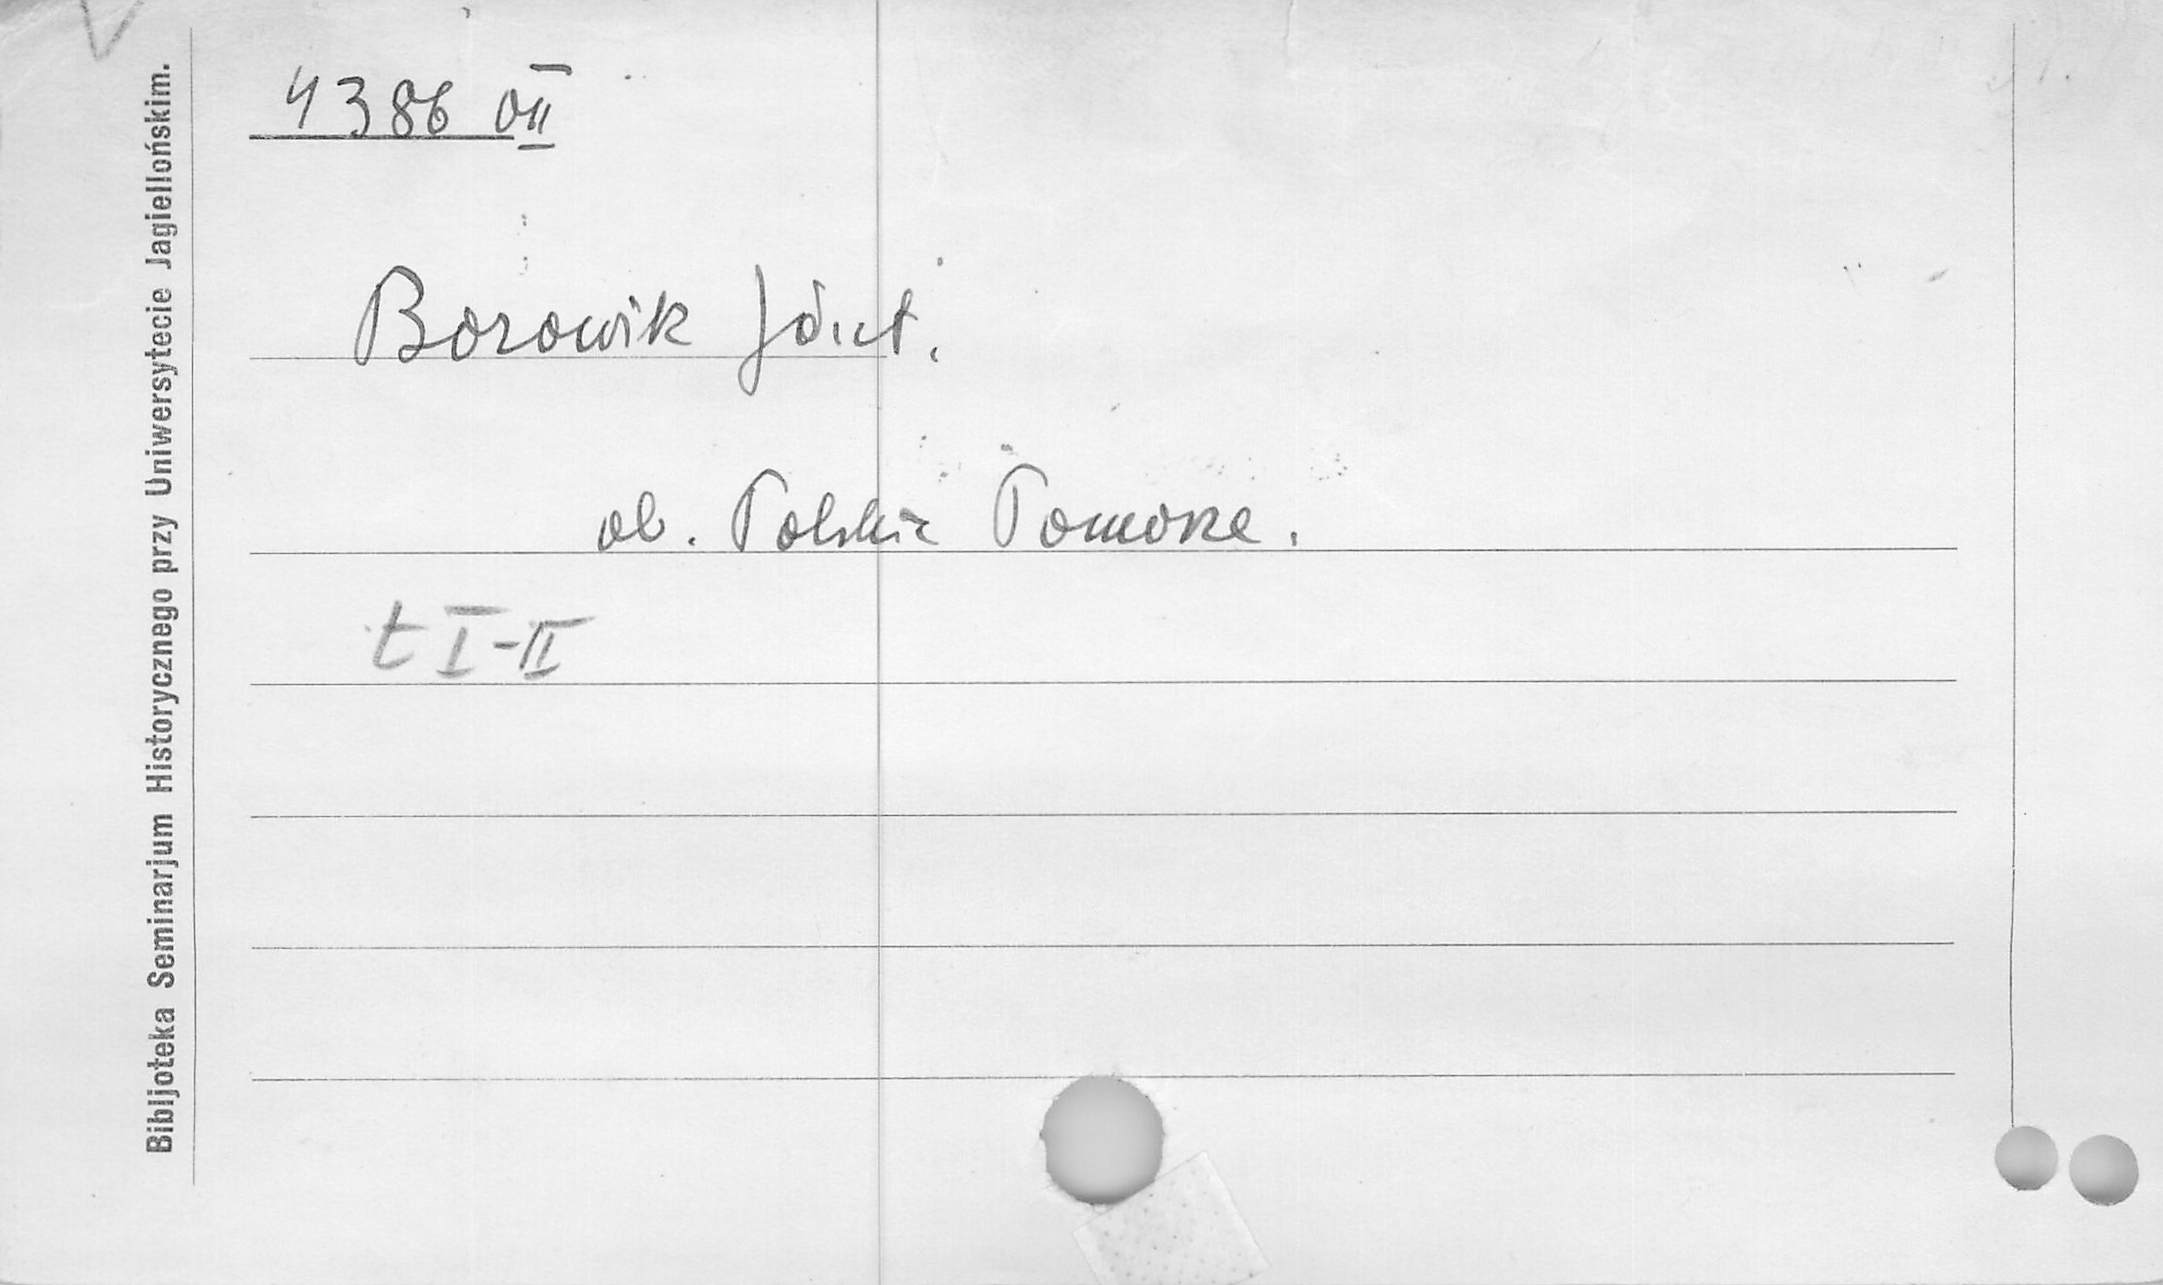 Bibljoteka Seminarjum Historycznego przy Uniwersytecie Jagiellońskim.
4386 II
Borowik Józef.
ob. Polskie Pomorze.
t I-II